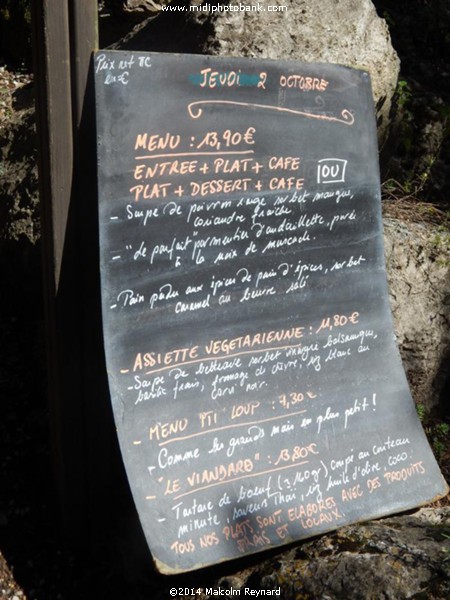 www.midiphotobank.com
Prix net TTC
en €
JEUDI 2 OCTOBRE
MENU : 13,90€
ENTREE + PLAT + CAFE
OU
PLAT + DESSERT + CAFE
- Soupe de poivron rouge sorbet mangue,
coriandre fraîche.
- "Le parfait" parmentier d'andouillette, purée
à la noix de muscade.
- Pain perdu aux épices de pain d'épices, sorbet
caramel au beurre salé
- ASSIETTE VEGETARIENNE : 11,80€
- Soupe de betterave sorbet vinaigre balsamique,
basilic frais, fromage de chèvre, riz blanc au
carvi noir.
- MENU PTI LOUP : 7,30€
- Comme les grands mais en plus petit !
- "LE VIANDARD" : 13,80€
- Tartare de boeuf coupé au couteau
minute, saveurs Thaï, riz huile d'olive, coco.
TOUS NOS PLATS SONT ELABORES AVEC DES PRODUITS
FRAIS ET LOCAUX.
©2014 Malcolm Reynard